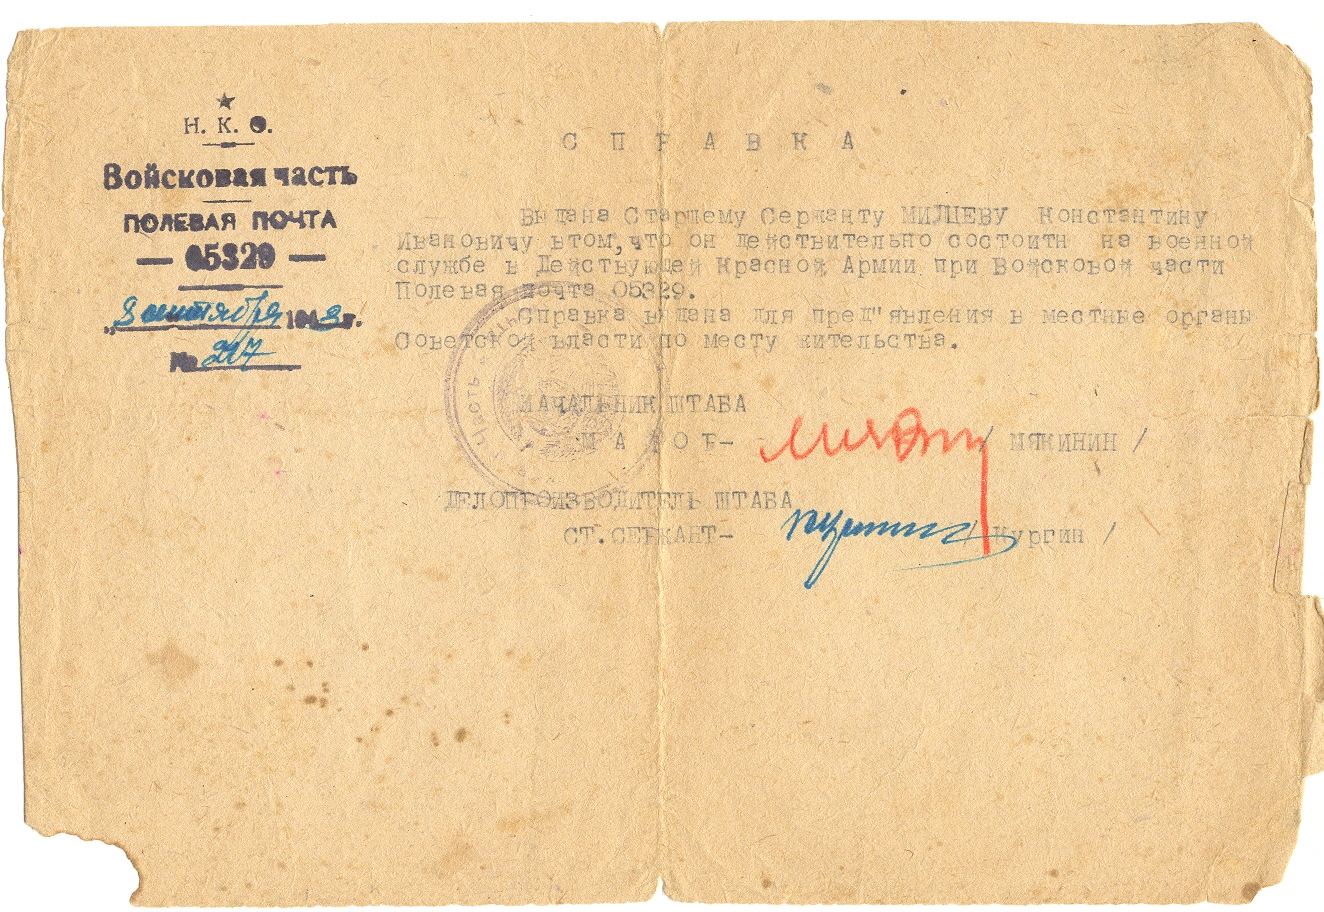 Н. К. О.
Войсковая часть
ПОЛЕВАЯ ПОЧТА
— 05329 —
"8 сентября 1943 г.
№ 217
С П Р А В К А
Выдана Старшему Сержанту МИЛЦЕВУ Константину
Ивановичу втом, что он действительно состоитн на военной
службе в Действующей Красной Армии при Войсковой части
Полевая почта 05329.
Справка выдана для пред"явления в местные органы
Советской власти по месту жительства.
НАЧАЛЬНИК ШТАБА
М А Й О Р - / МЯКИНИН /
ДЕЛОПРОИЗВОДИТЕЛЬ ШТАБА
СТ. СЕРЖАНТ- / Кургин /
ЧАСТЬ